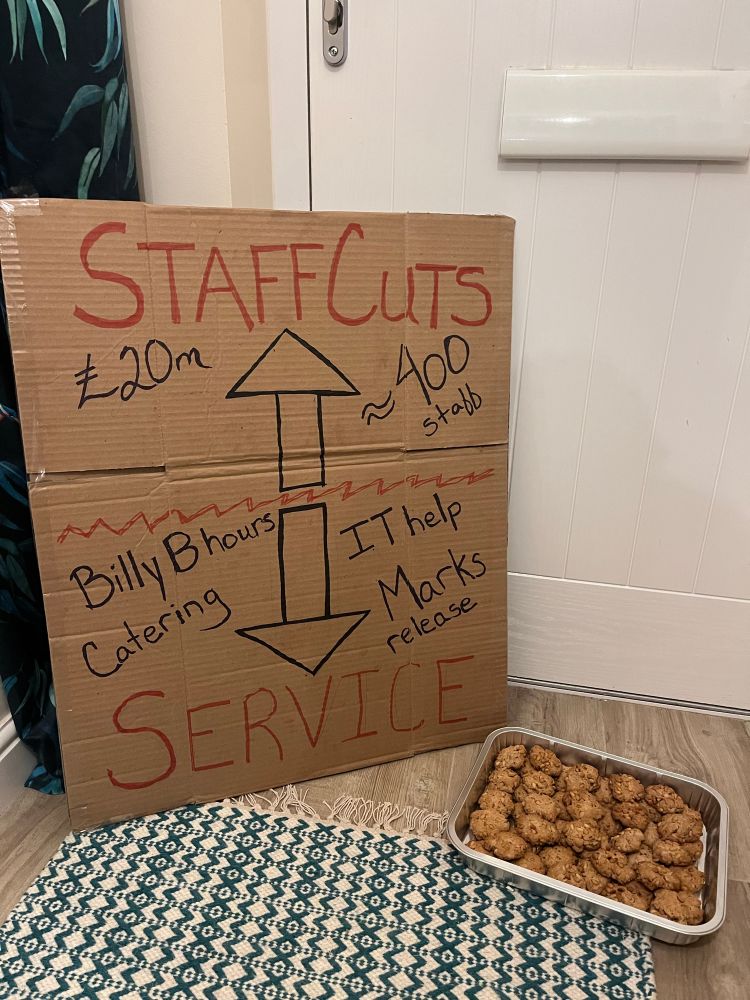 STAFF CUTS
£20m
≈400
staff
Billy B hours
IT help
Catering
Marks
release
SERVICE